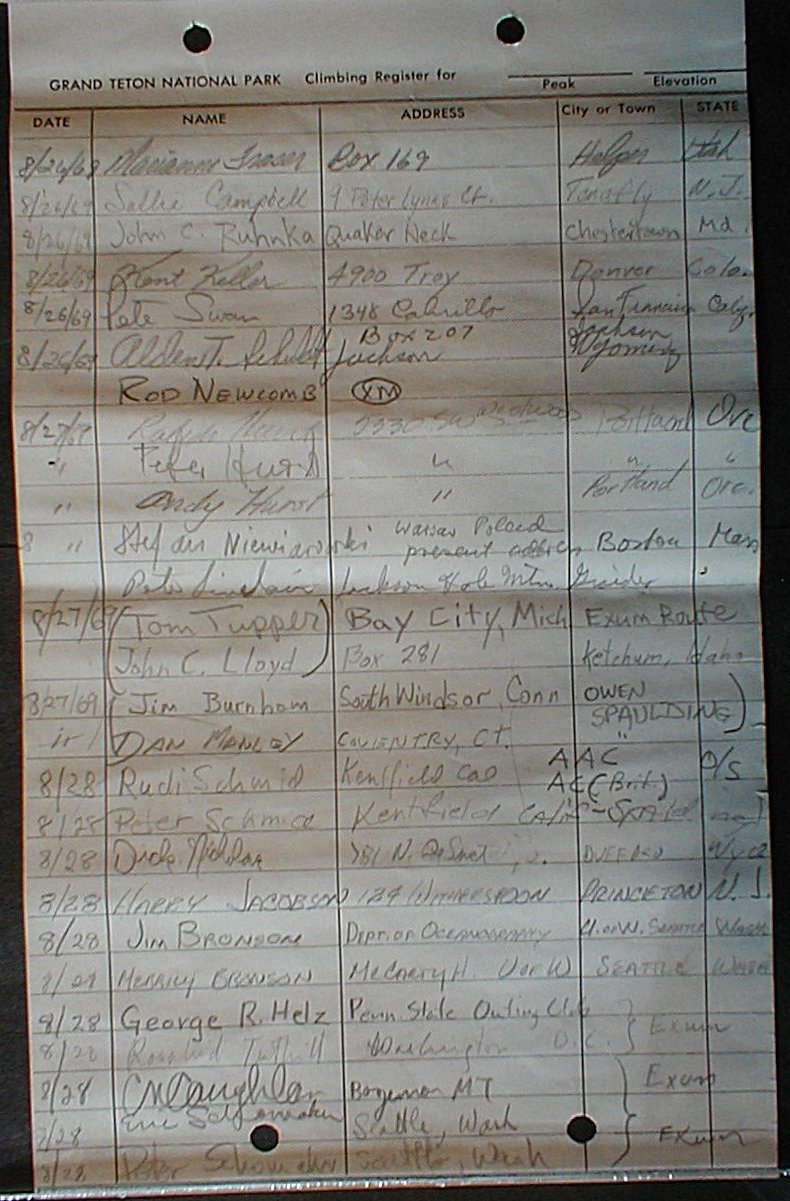 GRAND TETON NATIONAL PARK Climbing Register for Peak Elevation
DATE NAME ADDRESS City or Town STATE
8/26/69 Marianne Fraser Box 169 Helper Utah
8/26/69 Sallie Campbell 9 Peter Lynas Ct. Tenafly N.J.
8/26/69 John C. Ruhnka Quaker Neck Chestertown Md.
8/26/69 Kent Keller 4900 Troy Denver Colo.
8/26/69 Pete Swan 1348 Cabrillo San Francisco Calif.
8/26/69 Box 207 Jackson Jackson Wyoming
ROD NEWCOMB XM
8/27/69 Ralph Hurst SW Portland Ore
" Peter Hurst " " "
" Andy Hurst " Portland Ore.
8 " Stefan Niewiarowski Warsaw Poland present address Boston Mass
Pete Sinclair Jackson Hole Mtn. Guides
8/27/69 (Tom Tupper) Bay City, Mich Exum Route
John C. Lloyd Box 281 Ketchum, Idaho
8/27/69 Jim Burnham South Windsor, Conn OWEN SPAULDING
" DAN MANLEY COVENTRY, CT. "
8/28 Rudi Schmid Kentfield Cal AAC AC (Brit.) O/S
8/28 Peter Schmid Kentfield Calif
8/28 Dick N.
8/28 HARRY JACOBSON 134 WITHERSPOON PRINCETON N.J.
8/28 JIM BRONSON DEPT OF OCEANOGRAPHY U. OF W. SEATTLE WASH
MERRILY BRONSON McCarty H. U of W SEATTLE WASH
8/28 George R. Helz Penn State Outing Club
Washington D.C. Exum
8/28 Bozeman MT Exum
Eric Seattle, Wash
Peter Seattle, Wash Exum